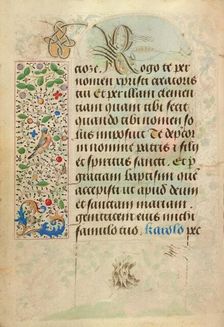 ctoze. Rogo te per
nomen xpristi creatoris
tui Et per illam clemen
tiam quam tibi fecit
quando tibi nomen so
lus imposuit Te depcor
in nomine patris et filij
et spiritus sancti Et p
gratiam baptismi que
accepisti ut apud deum
et sanctam mariam
genitricem eius michi
famulo tuo karolo pec